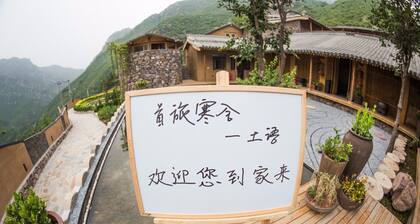 首旅寒舍
一土语
欢迎您到家来